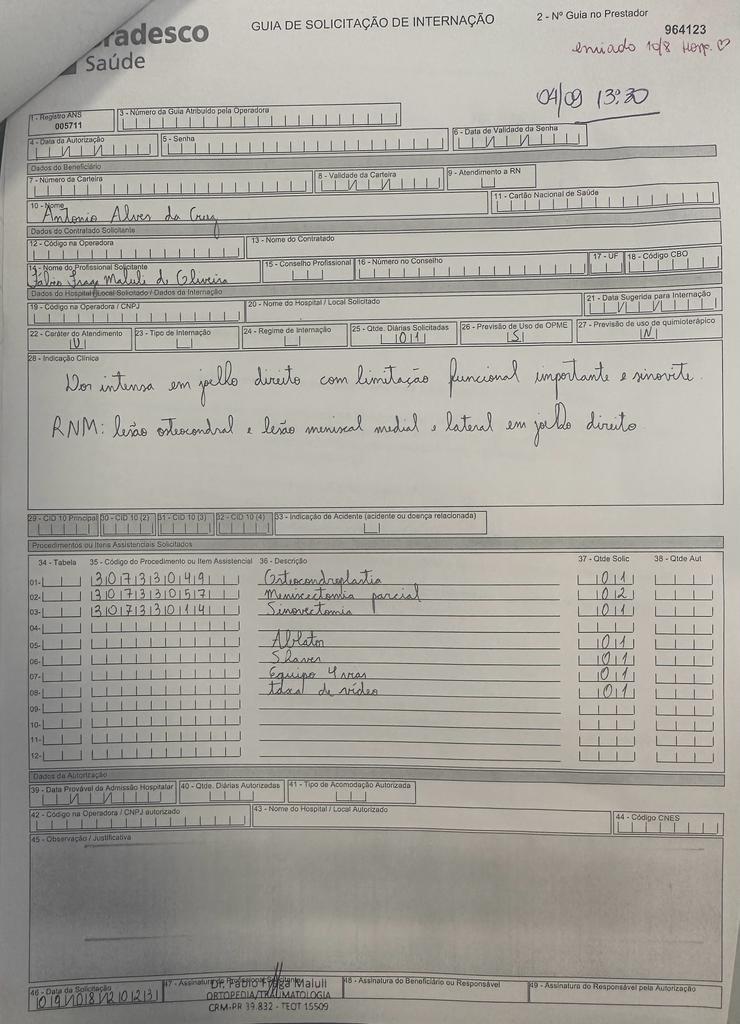 radesco
Saúde
GUIA DE SOLICITAÇÃO DE INTERNAÇÃO
2 - Nº Guia no Prestador
964123
enviado 10/8 Hosp. ♡
04/09 13:30
1 - Registro ANS
005711
3 - Número da Guia Atribuído pela Operadora
4 - Data da Autorização
5 - Senha
6 - Data de Validade da Senha
Dados do Beneficiário
7 - Número da Carteira
8 - Validade da Carteira
9 - Atendimento a RN
10 - Nome
Antonio Alves da Cruz
11 - Cartão Nacional de Saúde
Dados do Contratado Solicitante
12 - Código na Operadora
13 - Nome do Contratado
14 - Nome do Profissional Solicitante
Fábio Fraga Maluli de Oliveira
15 - Conselho Profissional
16 - Número no Conselho
17 - UF
18 - Código CBO
Dados do Hospital / Local Solicitado / Dados da Internação
19 - Código na Operadora / CNPJ
20 - Nome do Hospital / Local Solicitado
21 - Data Sugerida para Internação
22 - Caráter do Atendimento
U
23 - Tipo de Internação
24 - Regime de Internação
25 - Qtde. Diárias Solicitadas
01
26 - Previsão de Uso de OPME
S
27 - Previsão de uso de quimioterápico
N
28 - Indicação Clínica
Dor intensa em joelho direito com limitação funcional importante e sinovite.
RNM: lesão osteocondral e lesão meniscal medial e lateral em joelho direito
29 - CID 10 Principal
30 - CID 10 (2)
31 - CID 10 (3)
32 - CID 10 (4)
33 - Indicação de Acidente (acidente ou doença relacionada)
Procedimentos ou Itens Assistenciais Solicitados
34 - Tabela 35 - Código do Procedimento ou Item Assistencial 36 - Descrição 37 - Qtde Solic 38 - Qtde Aut
01- 30733049 Osteocondroplastia 01
02- 30733057 Meniscectomia parcial 02
03- 30733014 Sinovectomia 01
04-
05- Ablator 01
06- Shaver 01
07- Equipo 4 vias 01
08- taxa de vídeo 01
09-
10-
11-
12-
Dados da Autorização
39 - Data Provável da Admissão Hospitalar
40 - Qtde. Diárias Autorizadas
41 - Tipo de Acomodação Autorizada
42 - Código na Operadora / CNPJ autorizado
43 - Nome do Hospital / Local Autorizado
44 - Código CNES
45 - Observação / Justificativa
46 - Data da Solicitação
09/08/2023
47 - Assinatura do Profissional Solicitante
Dr. Fábio Fraga Maluli
ORTOPEDIA/TRAUMATOLOGIA
CRM-PR 39.832 - TEOT 15509
48 - Assinatura do Beneficiário ou Responsável
49 - Assinatura do Responsável pela Autorização